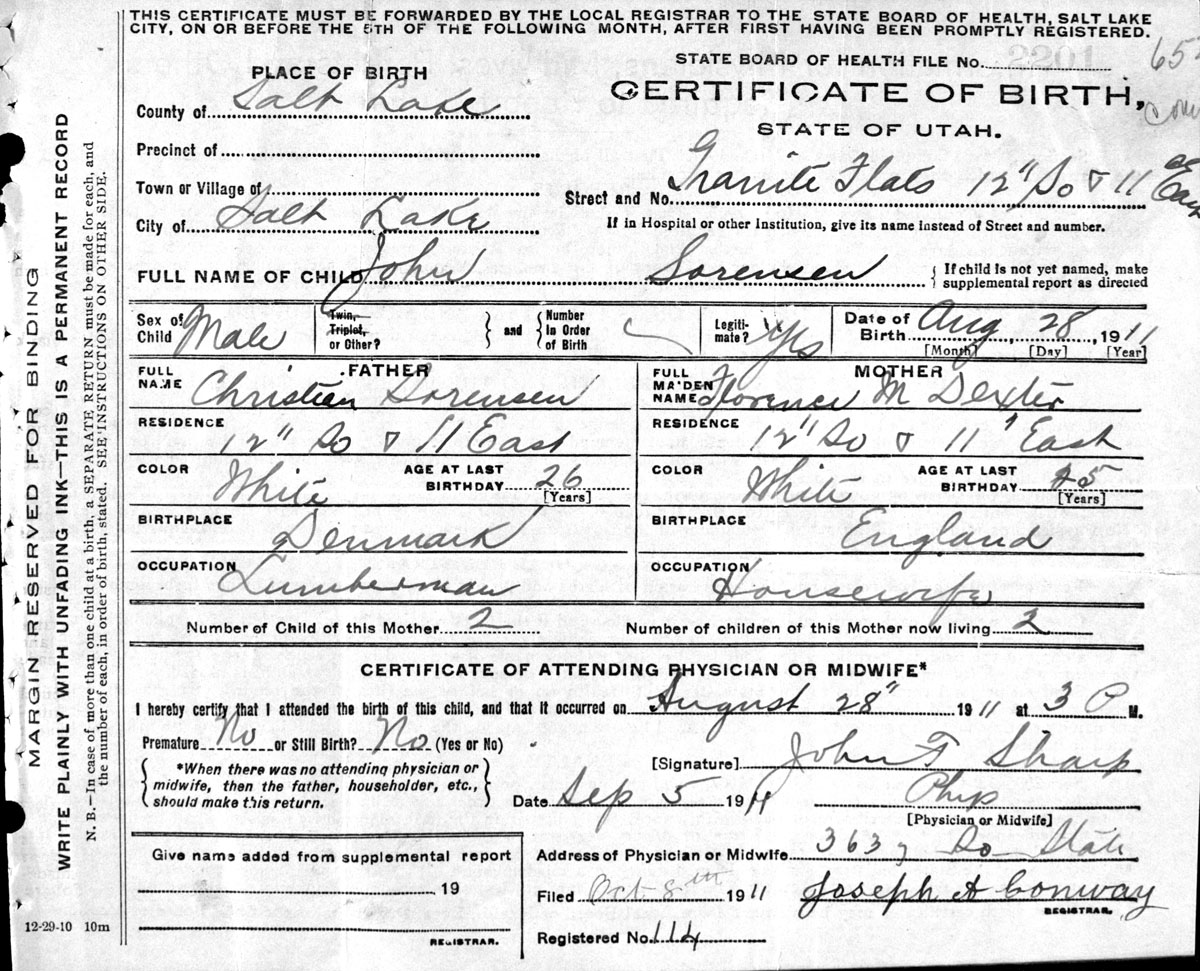 THIS CERTIFICATE MUST BE FORWARDED BY THE LOCAL REGISTRAR TO THE STATE BOARD OF HEALTH, SALT LAKE
CITY, ON OR BEFORE THE 5TH OF THE FOLLOWING MONTH, AFTER FIRST HAVING BEEN PROMPTLY REGISTERED.
STATE BOARD OF HEALTH FILE No.
PLACE OF BIRTH
CERTIFICATE OF BIRTH,
County of Salt Lake
STATE OF UTAH.
Precinct of
Town or Village of
Street and No. Granite Flats 12" So & 11 East
City of Salt Lake
If in Hospital or other Institution, give its name instead of Street and number.
FULL NAME OF CHILD John Sorensen { If child is not yet named, make
supplemental report as directed
Sex of Child Male
Twin, Triplet, or Other? } and { Number in Order of Birth
Legitimate? Yes
Date of Birth Aug 28, 1911
[Month] [Day] [Year]
FATHER
FULL NAME Christian Sorensen
RESIDENCE 12" So & 11 East
COLOR White AGE AT LAST BIRTHDAY 26 [Years]
BIRTHPLACE Denmark
OCCUPATION Lumberman
MOTHER
FULL MAIDEN NAME Florence M Dexter
RESIDENCE 12" So & 11" East
COLOR White AGE AT LAST BIRTHDAY 25 [Years]
BIRTHPLACE England
OCCUPATION Housewife
Number of Child of this Mother 2 Number of children of this Mother now living 2
CERTIFICATE OF ATTENDING PHYSICIAN OR MIDWIFE*
I hereby certify that I attended the birth of this child, and that it occurred on August 28" 1911 at 3 P M.
Premature No or Still Birth? No (Yes or No)
{ *When there was no attending physician or
midwife, then the father, householder, etc.,
should make this return. }
[Signature] John F Sharp
Date Sep 5 1911 Phys
[Physician or Midwife]
Give name added from supplemental report
19
REGISTRAR.
Address of Physician or Midwife So State
Filed Oct 8th 1911 Joseph A Conway
REGISTRAR.
Registered No. 114
12-29-10 10m
MARGIN RESERVED FOR BINDING
WRITE PLAINLY WITH UNFADING INK—THIS IS A PERMANENT RECORD
N. B.—In case of more than one child at a birth, a SEPARATE RETURN must be made for each, and
the number of each, in order of birth, stated. SEE INSTRUCTIONS ON OTHER SIDE.